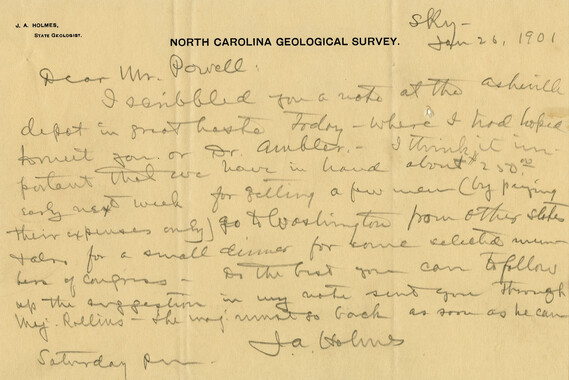 J. A. HOLMES,
STATE GEOLOGIST.
NORTH CAROLINA GEOLOGICAL SURVEY.
Sky-
Jan 26, 1901
Dear Mr. Powell:
I scribbled you a note at the Asheville
depot in great haste today - where I had hoped
to meet you or Dr. Ambler. - I think it im-
portant that we have in hand about $250.00
early next week for getting a few men (by paying
their expenses only) go to Washington from other states
& also for a small dinner for some selected mem-
bers of Congress - Do the best you can to follow
up the suggestion in my note sent you through
Maj. Rollins - The Maj. must go back as soon as he can
J. A. Holmes
Saturday pm.